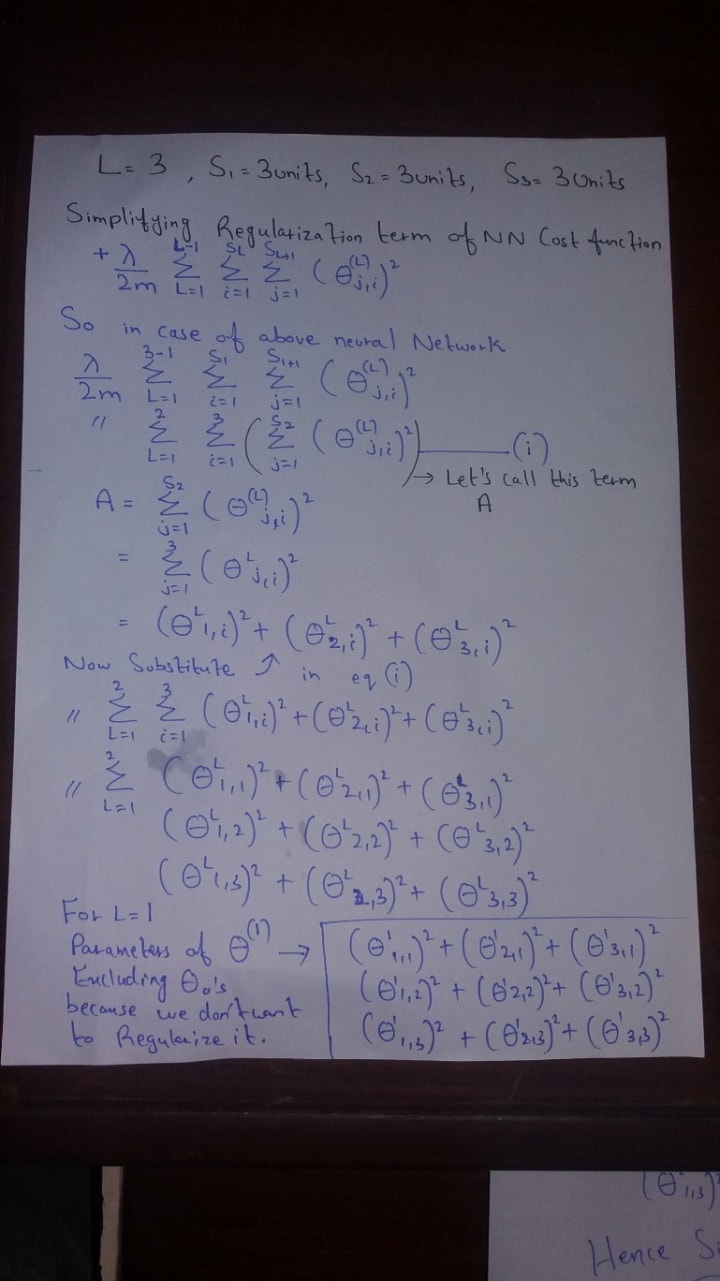 L = 3 , S₁ = 3units, S₂ = 3units, S₃ = 3Units
Simplifying Regularization term of NN Cost function
+ λ/2m Σ_{L=1}^{L-1} Σ_{i=1}^{SL} Σ_{j=1}^{SL+1} (Θ^{(L)}_{j,i})²
So in case of above neural Network
λ/2m Σ_{L=1}^{3-1} Σ_{i=1}^{S₁} Σ_{j=1}^{S₁₊₁} (Θ^{(L)}_{j,i})²
" Σ_{L=1}^{2} Σ_{i=1}^{3} (Σ_{j=1}^{S₂} (Θ^{(L)}_{j,i})²) ——— (i)
→ Let's call this term
A
A = Σ_{j=1}^{S₂} (Θ^{(L)}_{j,i})²
= Σ_{j=1}^{3} (Θ^L_{j,i})²
= (Θ^L_{1,i})² + (Θ^L_{2,i})² + (Θ^L_{3,i})²
Now Substitute ↑ in eq (i)
" Σ_{L=1}^{2} Σ_{i=1}^{3} (Θ^L_{1,i})² + (Θ^L_{2,i})² + (Θ^L_{3,i})²
" Σ_{L=1}^{2} (Θ^L_{1,1})² + (Θ^L_{2,1})² + (Θ^L_{3,1})²
(Θ^L_{1,2})² + (Θ^L_{2,2})² + (Θ^L_{3,2})²
(Θ^L_{1,3})² + (Θ^L_{2,3})² + (Θ^L_{3,3})²
For L=1
Parameters of Θ^{(1)} →
Excluding Θ₀'s
because we don't want
to Regularize it.
(Θ¹_{1,1})² + (Θ¹_{2,1})² + (Θ¹_{3,1})²
(Θ¹_{1,2})² + (Θ¹_{2,2})² + (Θ¹_{3,2})²
(Θ¹_{1,3})² + (Θ¹_{2,3})² + (Θ¹_{3,3})²
(Θ¹_{1,3})
Hence